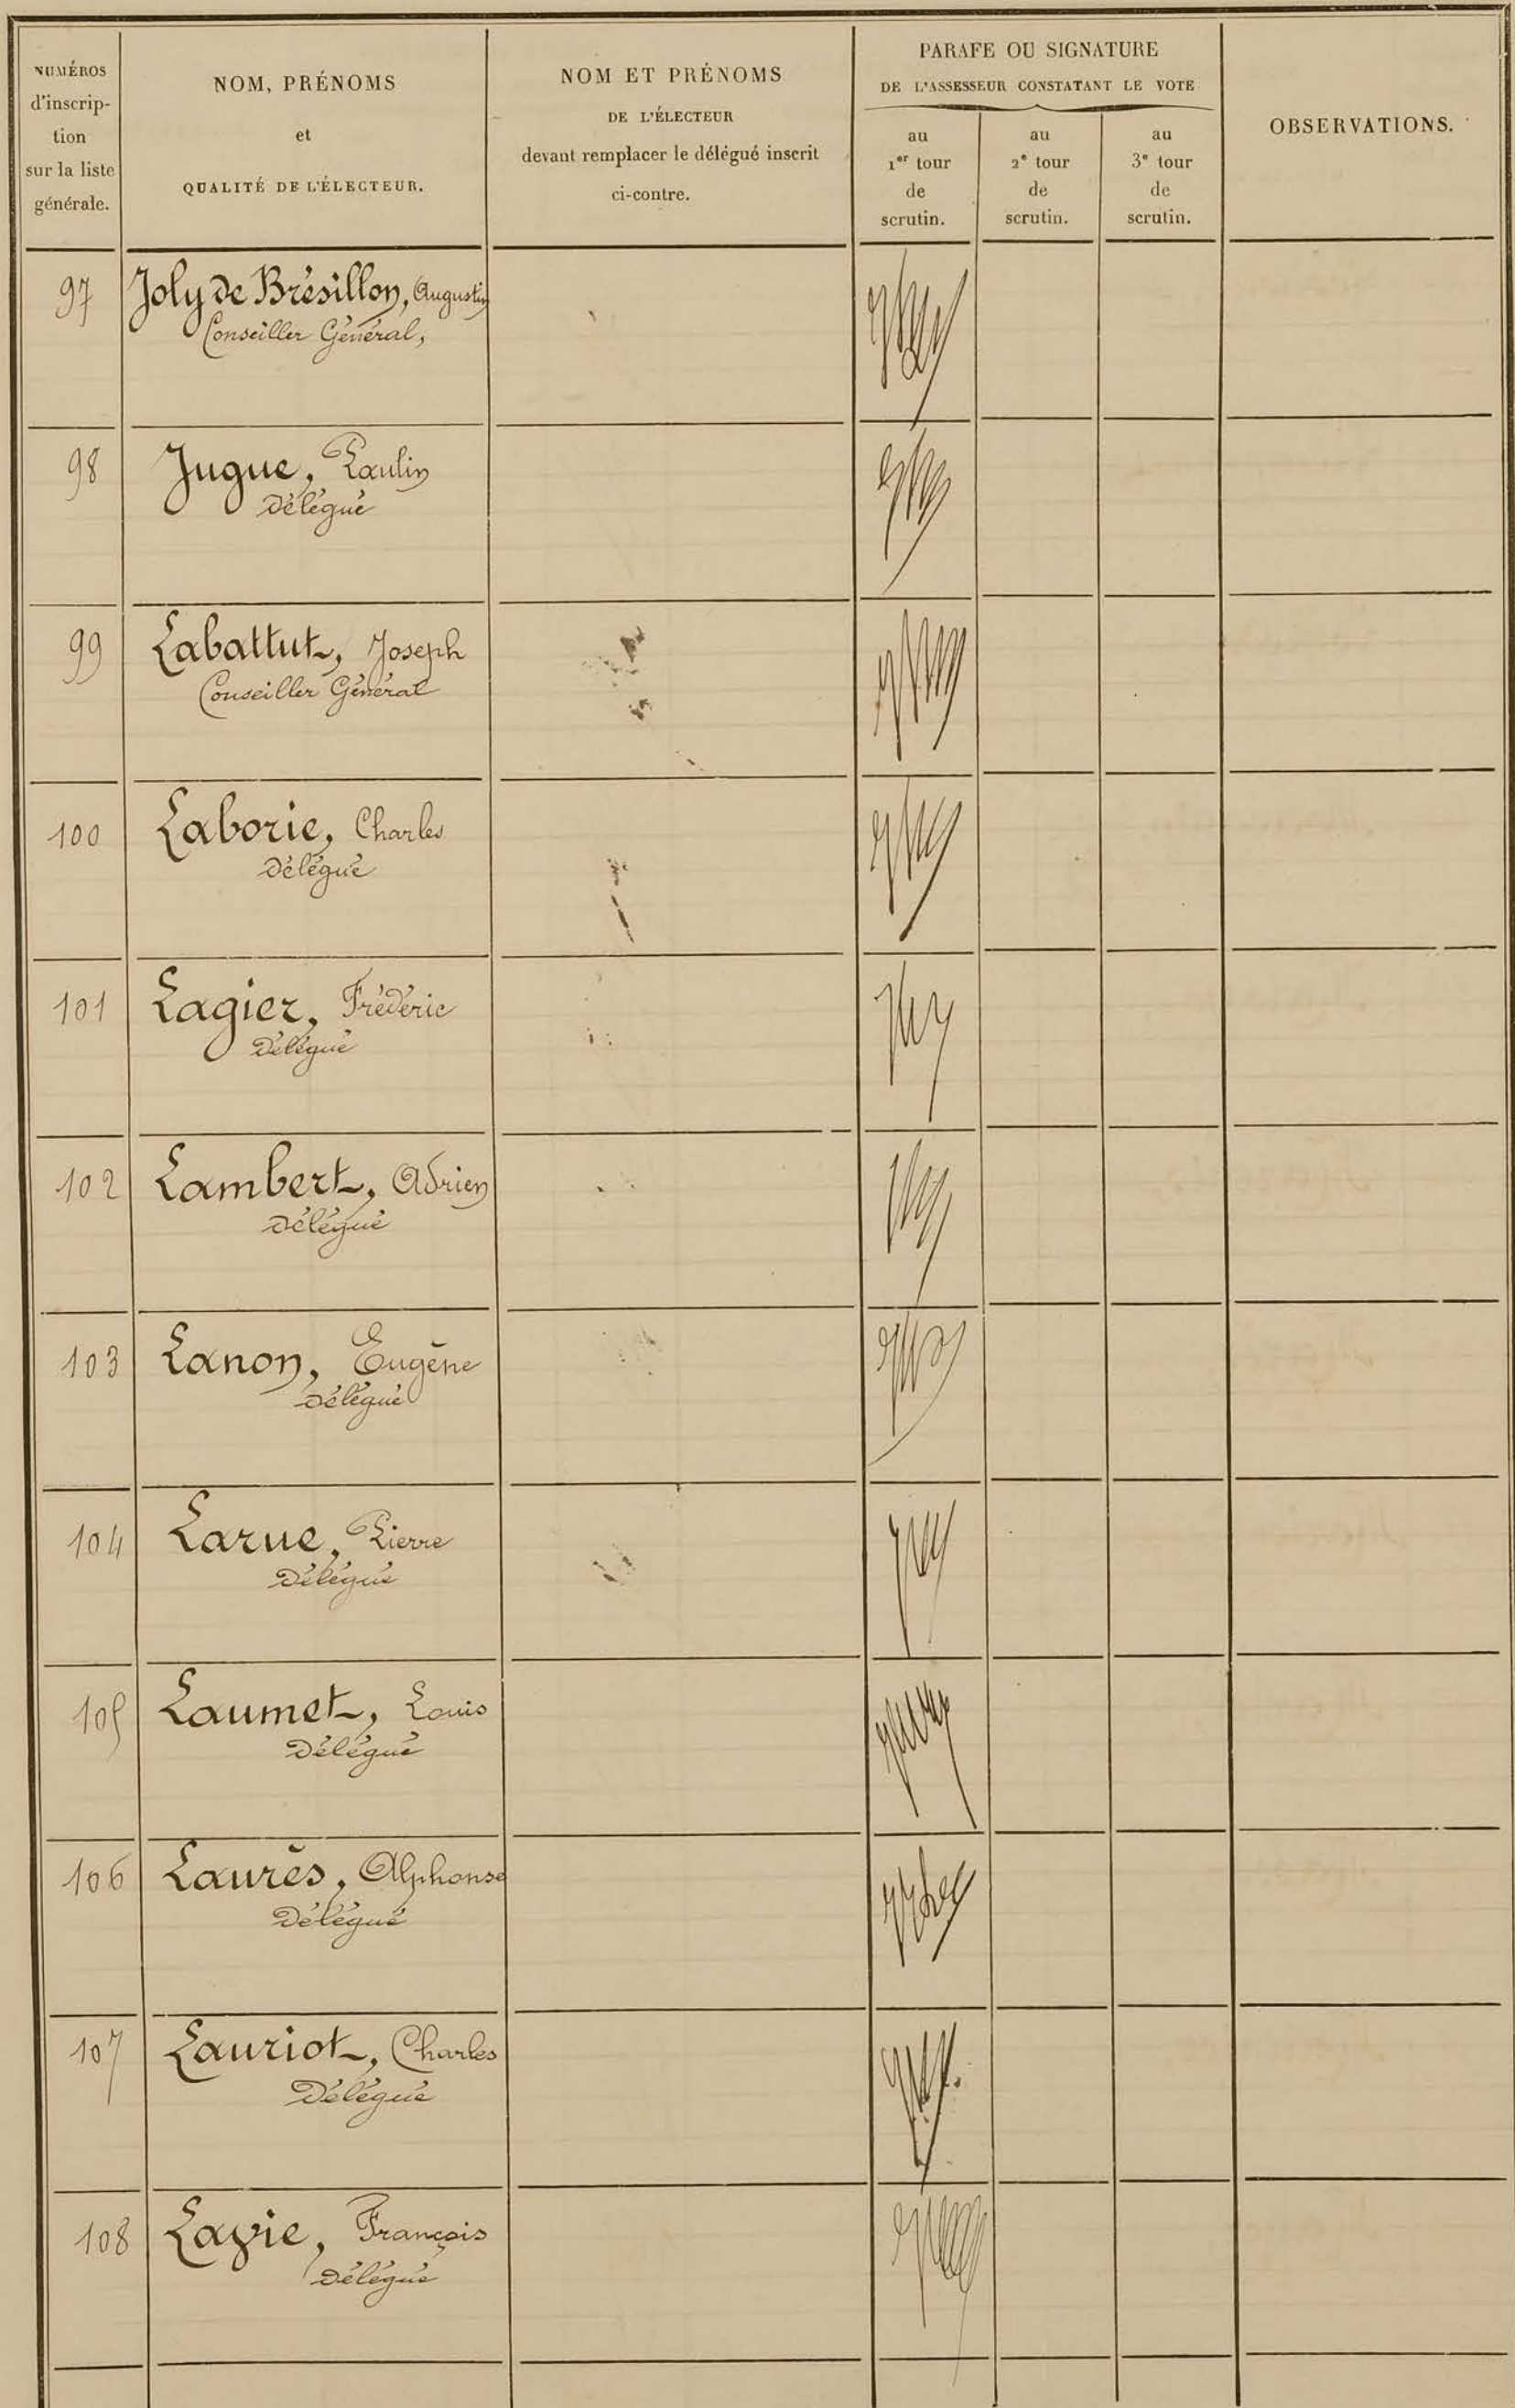 NUMÉROS
d'inscrip-
tion
sur la liste
générale.
NOM, PRÉNOMS
et
QUALITÉ DE L'ÉLECTEUR.
NOM ET PRÉNOMS
DE L'ÉLECTEUR
devant remplacer le délégué inscrit
ci-contre.
PARAFE OU SIGNATURE
DE L'ASSESSEUR CONSTATANT LE VOTE
au
1er tour
de
scrutin.
au
2e tour
de
scrutin.
au
3e tour
de
scrutin.
OBSERVATIONS.
97 Joly de Brésillon, Augustin
Conseiller Général,
98 Jugue, Paulin
Délégué
99 Labattut, Joseph
Conseiller Général
100 Laborie, Charles
Délégué
101 Lagier, Frédéric
Délégué
102 Lambert, Adrien
Délégué
103 Lanon, Eugène
Délégué
104 Larue, Pierre
Délégué
105 Laumet, Louis
Délégué
106 Laurès, Alphonse
Délégué
107 Lauriot, Charles
Délégué
108 Lavie, François
Délégué